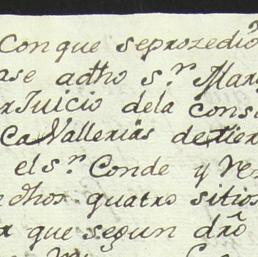 con que se prozedio
ase adho s.r Mar
r Juicio dela cons
Cavallerias de tier
el s.r Conde y Ve
dhos quatro sitios
que segun dro